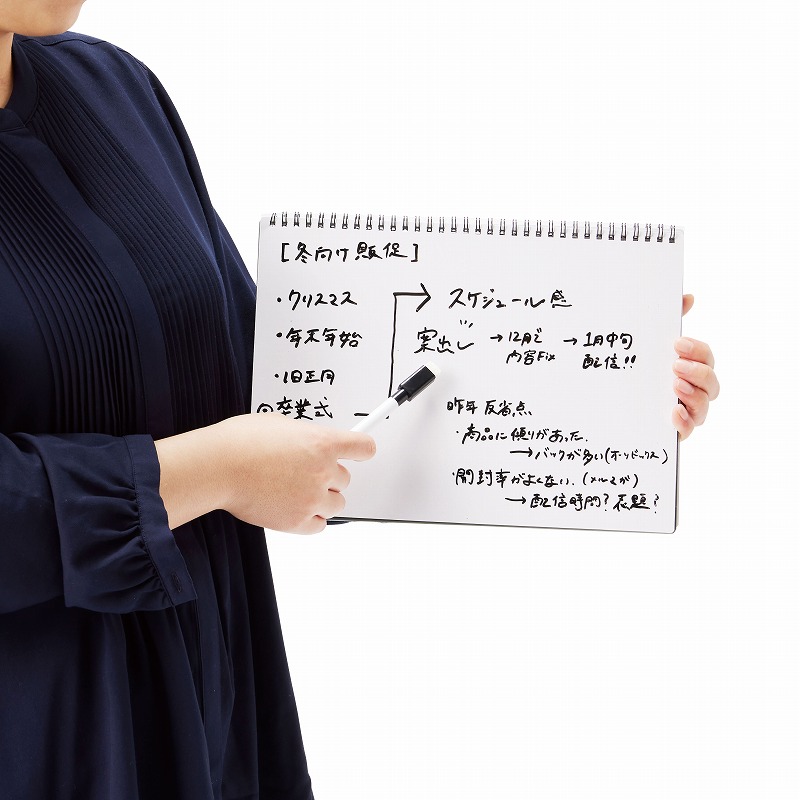 [冬向け販促]
・クリスマス
・年末年始
・旧正月
◎卒業式
スケジュール感
案出し →12月で内容Fix →1月中旬配信!!
昨年反省点
・商品に偏りがあった.
→バックが多い(オーソドックス)
・開封率がよくない.(メルマガ)
→配信時間?表題?